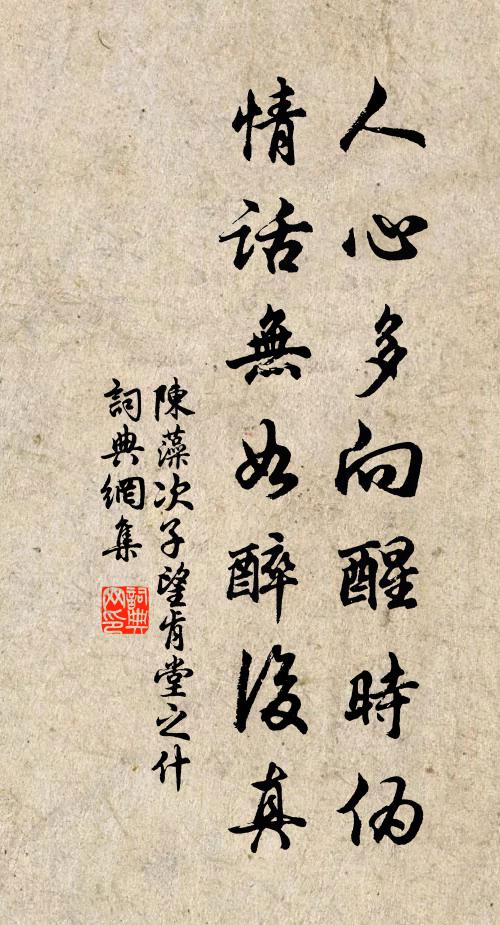 人心多向醒時偽
情話無如醉後真
陳藻次子望肯堂之什
詞典網集
詞典網印